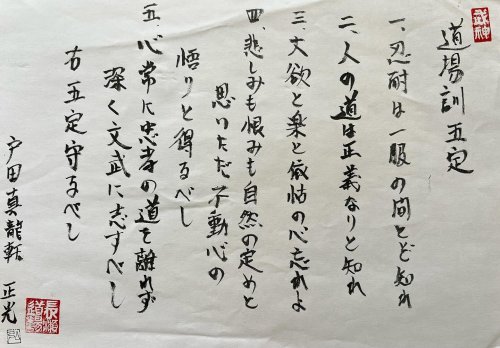 武神
道場訓五定
一、忍耐は一服の間とぞ知れ
二、人の道は正義なりと知れ
三、大欲と楽と依怙の心忘れよ
四、悲しみも恨みも自然の定めと
思いただ不動心の
悟りと得るべし
五、心常に忠孝の道を離れず
深く文武に志すべし
右五定守るべし
戸田真龍軒 正光